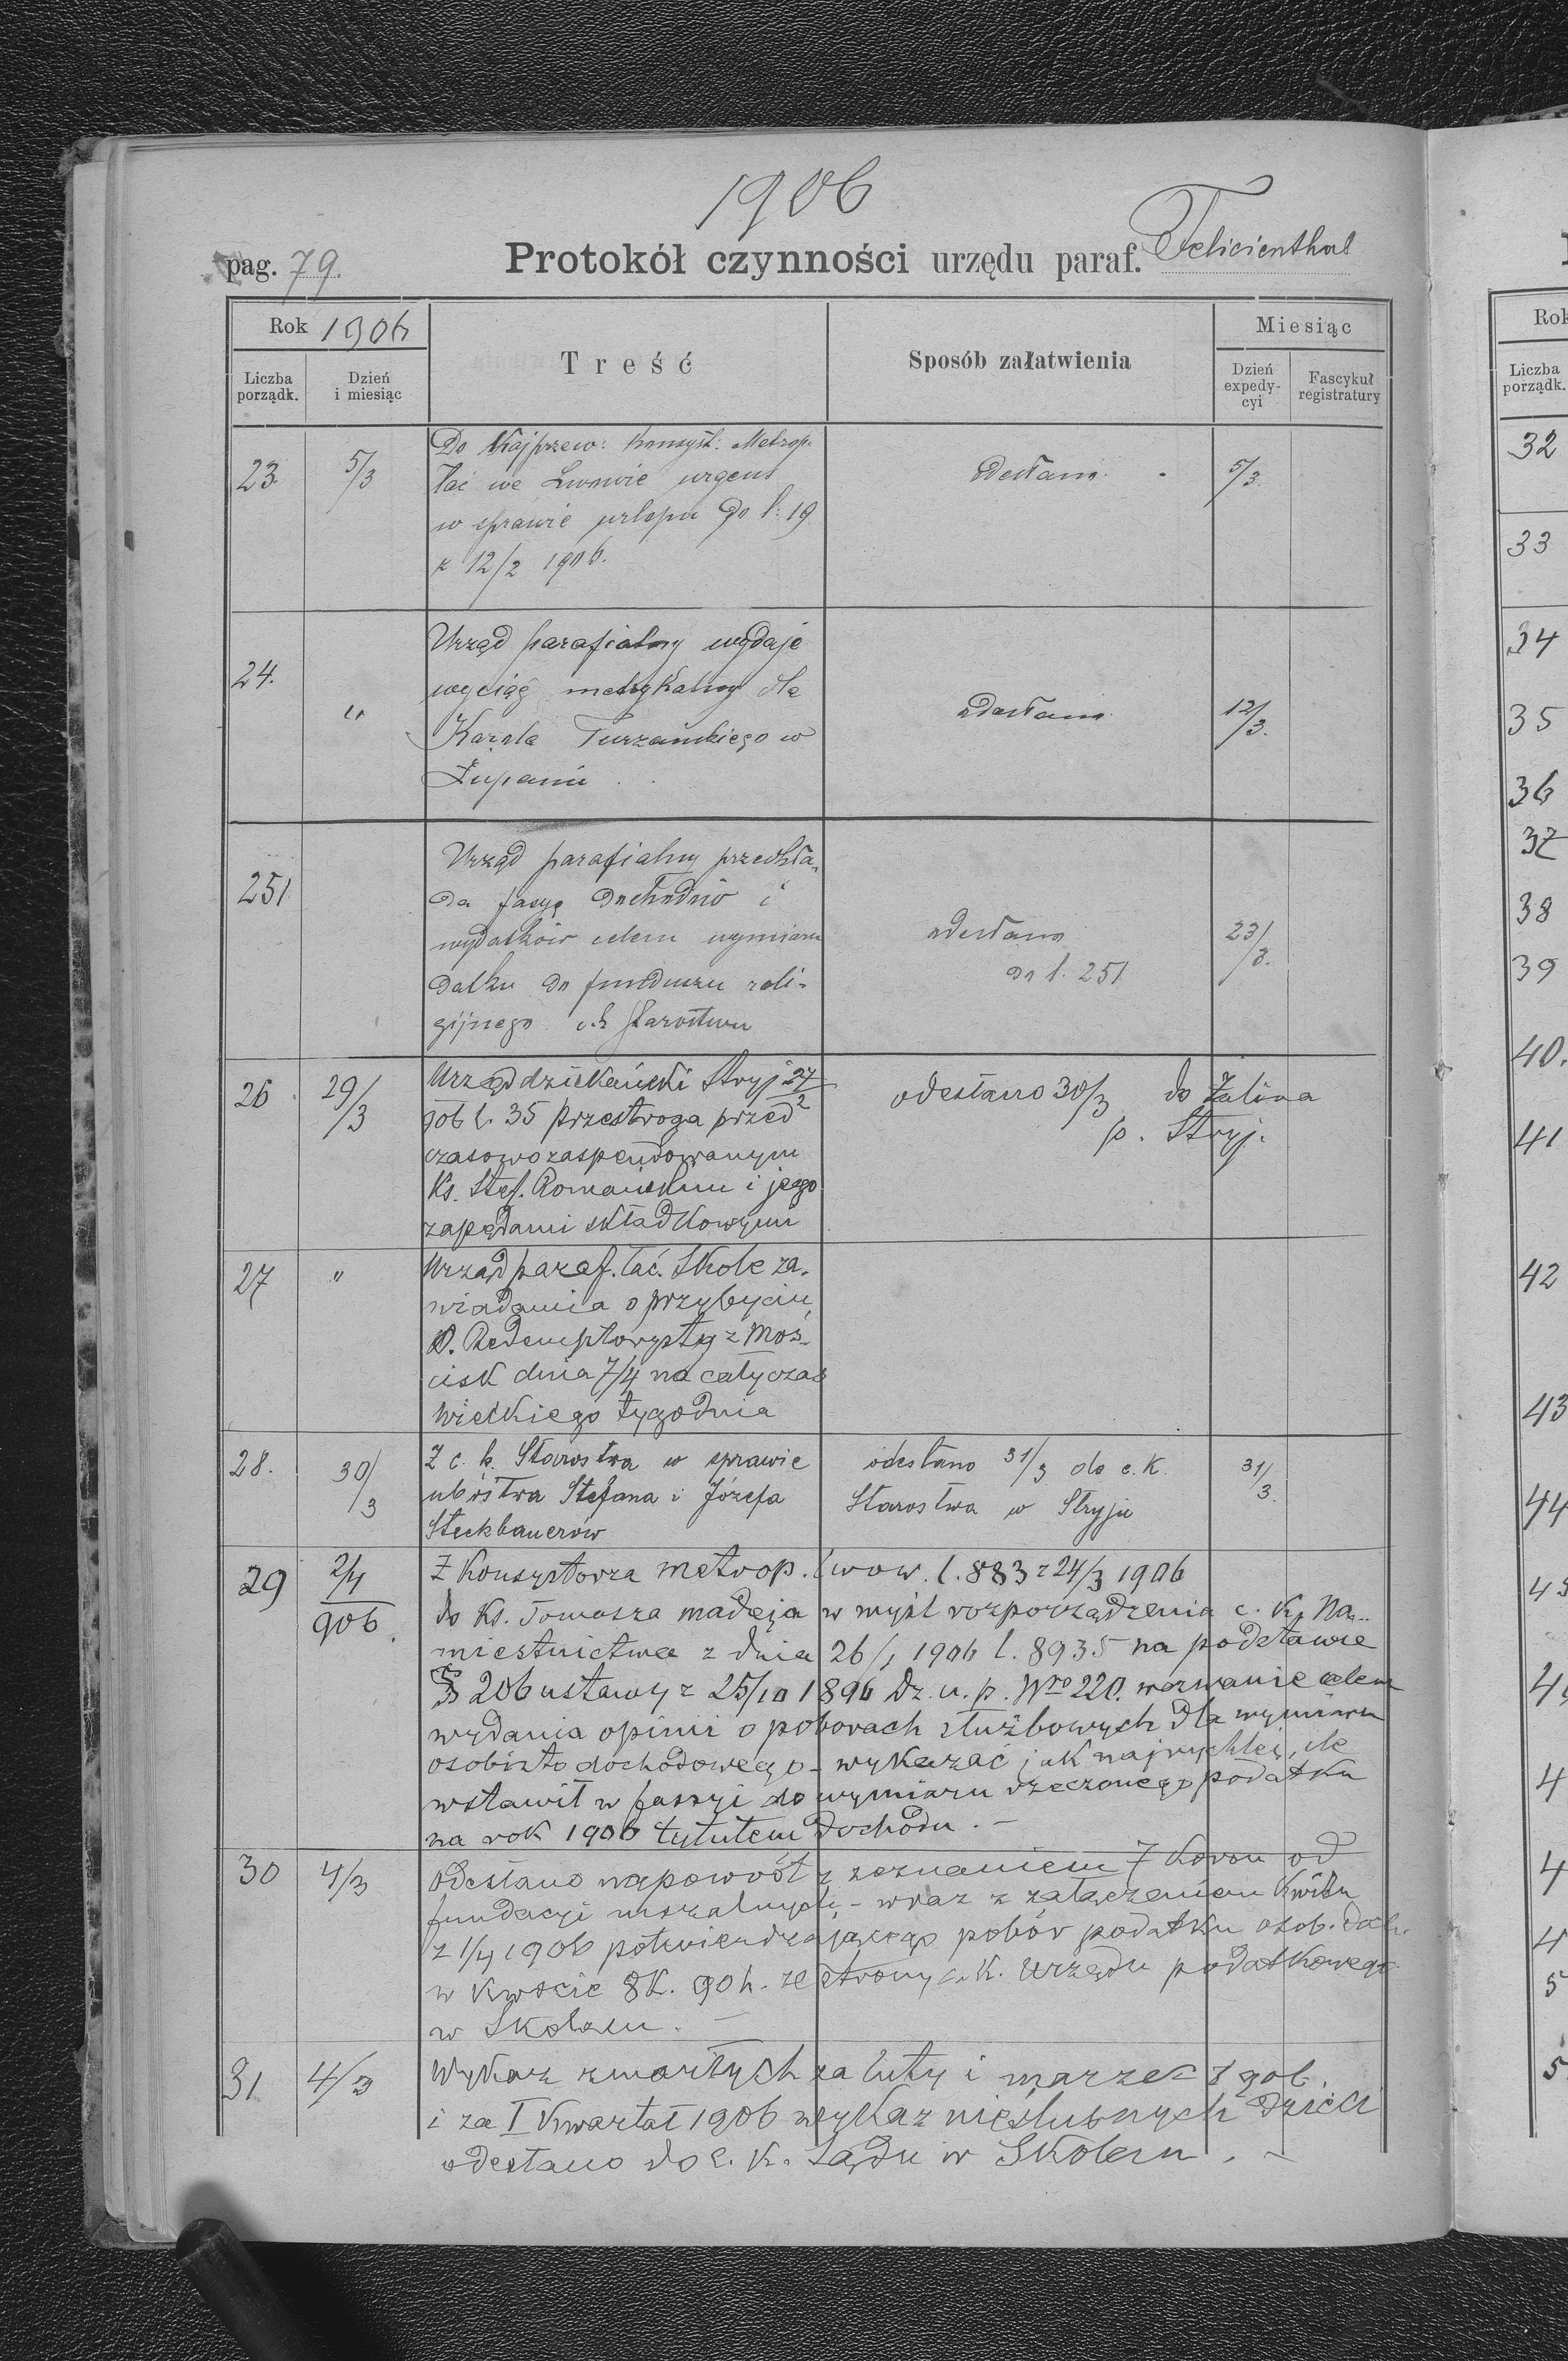 1906
pag. 79. Protokół czynności urzędu paraf. Felicienthal
Rok 1906 Treść Sposób załatwienia Miesiąc
Liczba porządk. Dzień i miesiąc Dzień expedycyi Fascykuł registratury
23. 5/3 Do Najprzew: Konsyst: Metrop. odesłano. 5/3.
łać we Lwowie urgens
w sprawie urlopu do l: 19
z 12/2 1906.
24. " Urząd parafialny wydaje odesłano 12/3.
wyciąg metrykalny dla
Karola Turzańskiego w
Żupaniu
251 Urząd parafialny przedkła-
da fasyę dochodów i
wydatków celem wymiaru odesłano 23/3.
datku do funduszu reli- do l. 251
gijnego c.k Starostwu
26 29/3 Urząd dziekański Stryj 27/2 odesłano 30/3 do Żulina
906 l. 35 przestroga przed p. Stryj.
czasowo zaspendowanym
Ks. Stef. Romańskim i jego
zapędami składkowymi
27 " Urząd paraf. łać. Skole za-
wiadamia o przybyciu
O. Redemptorysty z Moś-
cisk dnia 7/4 na cały czas
Wielkiego tygodnia
28. 30/3 Z c. k. Starostwa w sprawie odesłano 31/3 do c. K. 31/3.
ubóstwa Stefana i Józefa Starostwa w Stryju
Steckbauerów
29 2/4 906. Z Konsystorza metrop. lwow. l. 883 z 24/3 1906
do Ks. Tomasza Madeja w myśl rozporządzenia c. k. Na-
miestnictwa z dnia 26/1 1906 l. 8935 na podstawie
§ 206 ustawy z 25/10 1896 Dz. u. p. Nro 220. wezwanie celem
wydania opinii o poborach służbowych dla wymiaru
osobisto dochodowego - wykazać jak najrychlej, ile
wstawił w fassyi do wymiaru rzeczonego podatku
na rok 1906 tytułem dochodu. -
30 4/3 Odesłano napowrót z zeznaniem 7 Koron od
fundacyi mszalnych - wraz z załączeniem Kwitu
z 1/4 1906 potwierdzającego pobór podatku osob. doch.
w Kwocie 8K. 90h. ze strony c.K. Urzędu podatkowego
w Skolem. -
31 4/3 Wykaz zmarłych za luty i marzec 906.
i za I Kwartał 1906 wykaz nieślubnych dzieci
odesłano do c. K. Sądu w Skolem. -
Rok
Liczba porządk.
32
33
34
35
36
37
38
39
40.
41
42
43
44